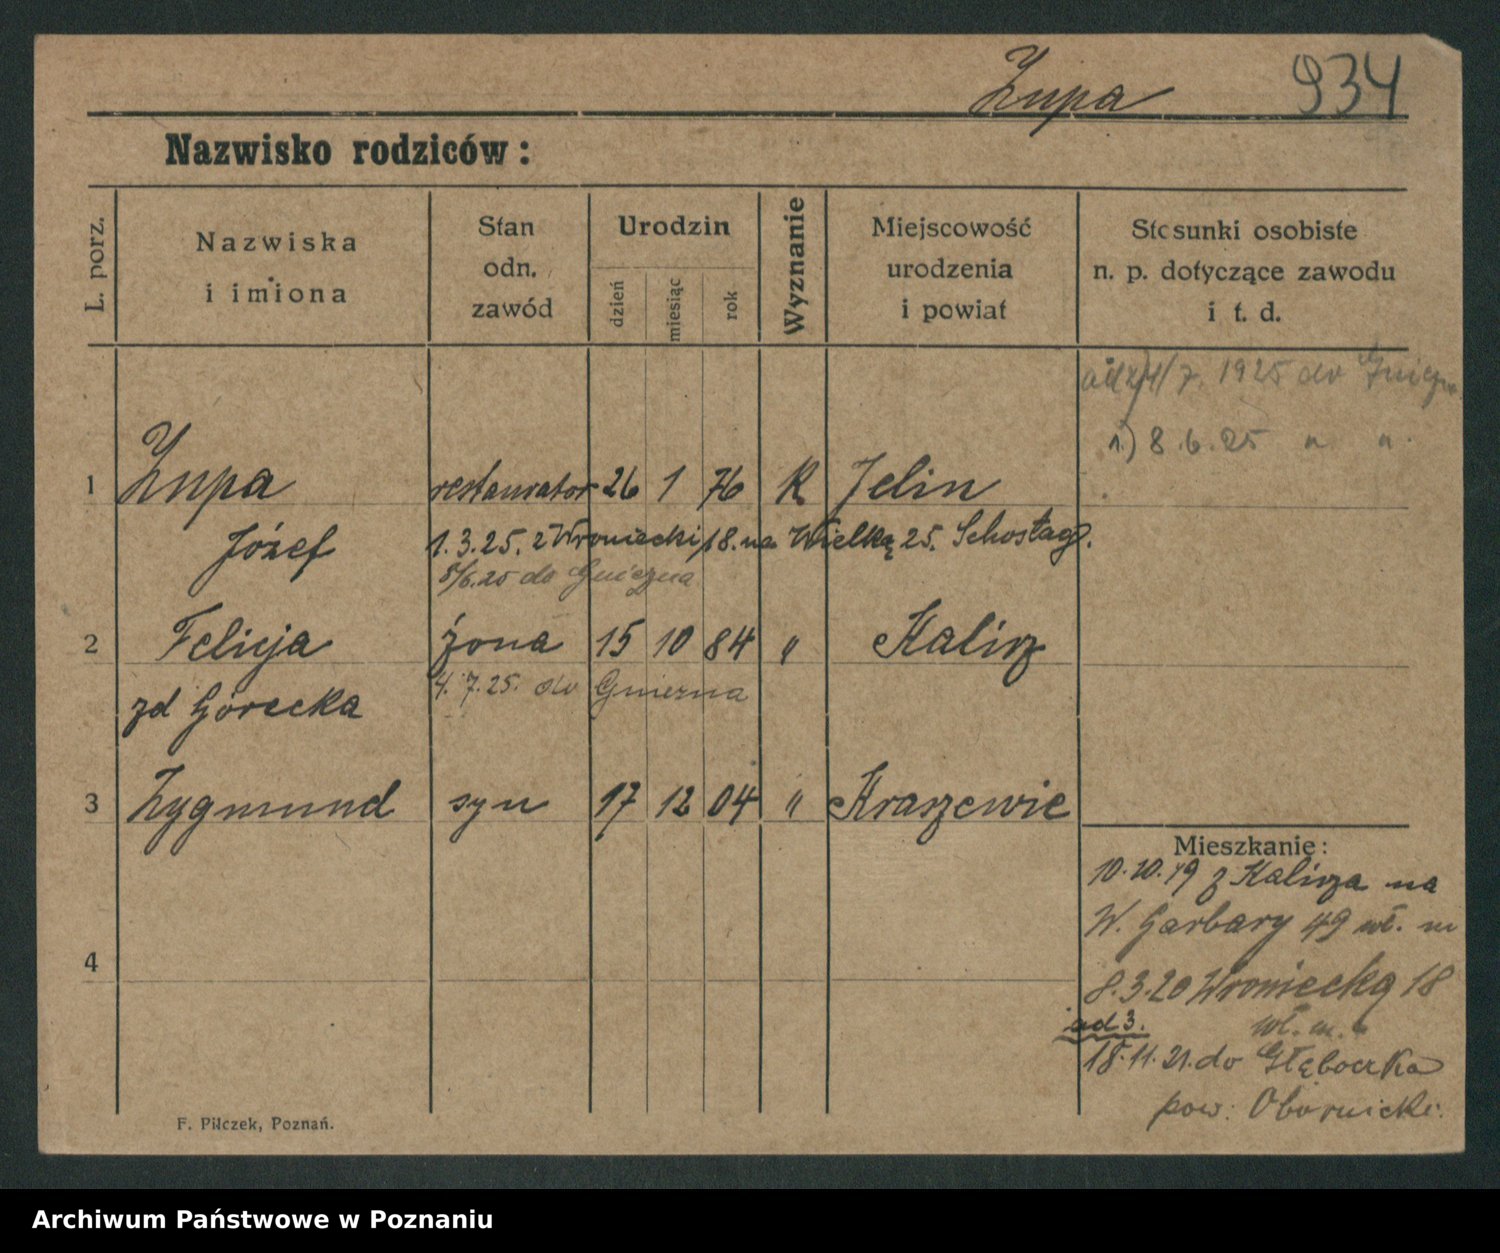 Zupa 934
Nazwisko rodziców:
L. porz.
Nazwiska
i imiona
Stan
odn.
zawód
Urodzin
dzień
miesiąc
rok
Wyznanie
Miejscowość
urodzenia
i powiat
Stosunki osobiste
n. p. dotyczące zawodu
i t. d.
ad 2) 4/7. 1925 do Gniezna
1.) 8.6.25 " "
1 Zupa restaurator 26 1 76 K Jelin
Józef 1.3.25. z Wroniecki 18. na Wielką 25. Schostag.
8/6.25 do Gniezna
2 Felicja żona 15 10 84 " Kalisz
zd Górecka 4.7.25. do Gniezna
3 Zygmund syn 17 12 04 " Kraszewie
4
Mieszkanie:
10.10.19 z Kalisza na
W. Garbary 49 wł. m
8.3.20 Wroniecką 18
wł. m.
ad 3.
18.11.21. do Głęboczka
pow: Obornicki.
F. Pilczek, Poznań.
Archiwum Państwowe w Poznaniu